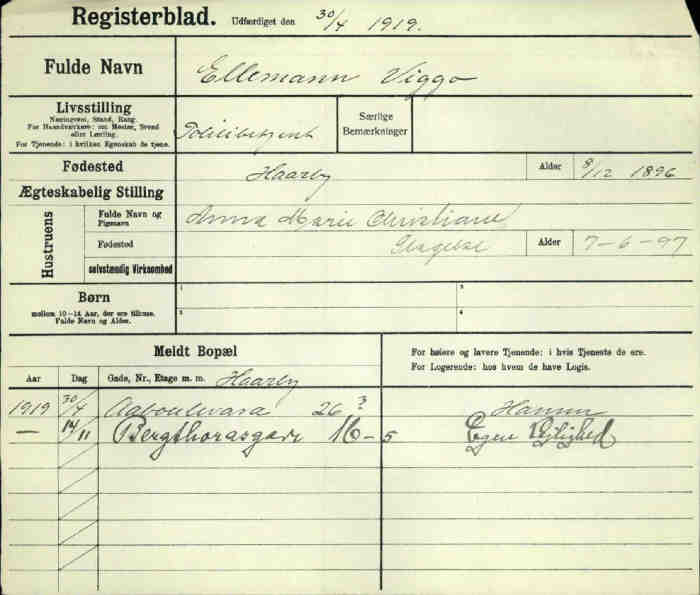 Registerblad. Udfærdiget den 30/4 1919.
Fulde Navn Ellemann Viggo
Livsstilling
Næringsvei, Stand, Rang.
For Haandværkere: om Mester, Svend
eller Lærling.
For Tjenende: i hvilken Egenskab de tjene.
Politibetjent
Særlige
Bemærkninger
Fødested Haarby Alder 8/12 1896
Ægteskabelig Stilling
Hustruens
Fulde Navn og
Pigenavn
Anna Marie Christiane
Fødested Slagelse Alder 7-6-97
selvstændig Virksomhed
Børn
mellem 10-14 Aar, der ere tilhuse.
Fulde Navn og Alder.
1 3
2 4
Meldt Bopæl
For høiere og lavere Tjenende: i hvis Tjeneste de ere.
For Logerende: hos hvem de have Logis.
Aar Dag Gade, Nr., Etage m. m. Haarby
1919 30/4 Aaboulevard 26 3 Hamm
— 14/11 Bergthorasgade 16-5 Egen Lejlighed